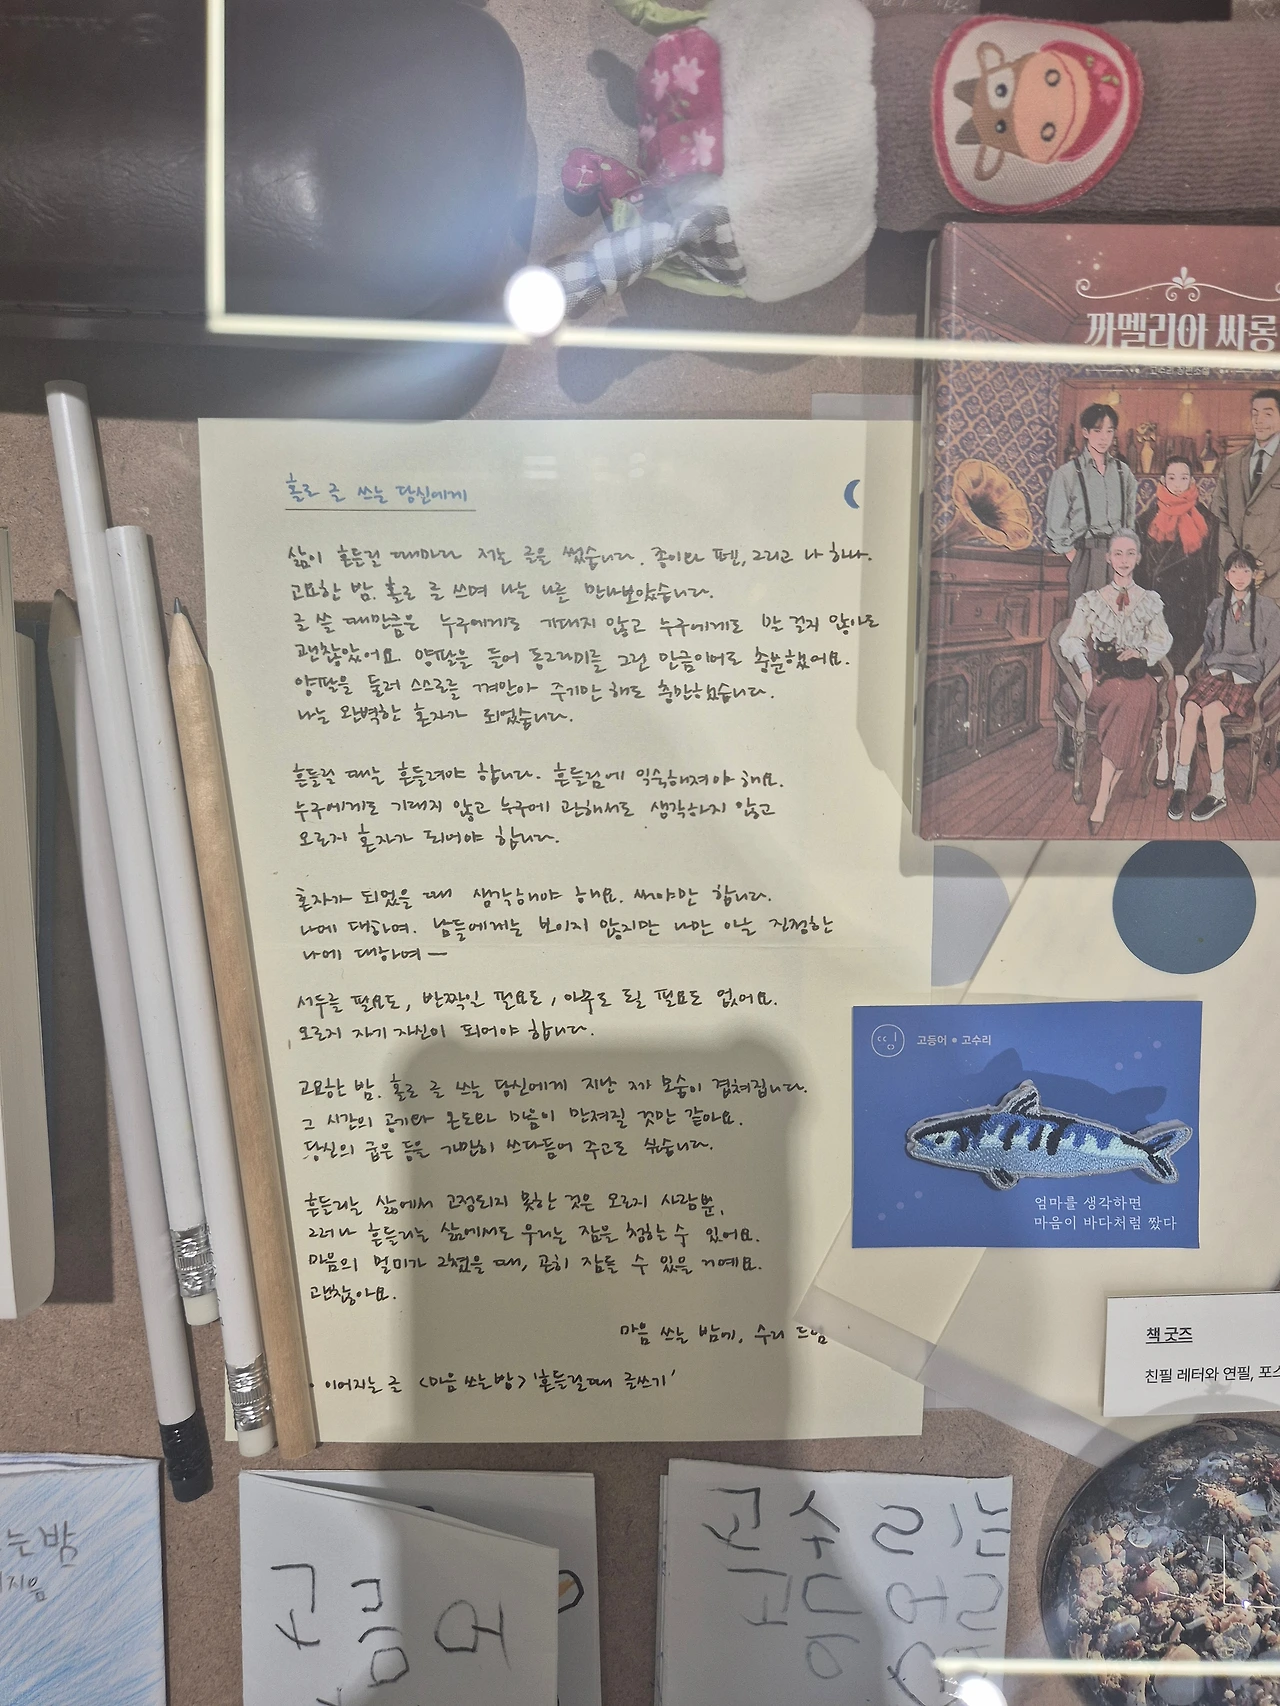 까멜리아 싸롱
고수리 장편소설
홀로 글 쓰는 당신에게
삶이 흔들릴 때마다 저는 글을 썼습니다. 종이와 펜, 그리고 나 하나.
고요한 밤. 홀로 글 쓰며 나는 나를 만나보았습니다.
글 쓸 때만큼은 누구에게도 기대지 않고 누구에게도 말 걸지 않아도
괜찮았어요. 양팔을 들어 동그라미를 그린 만큼이어도 충분했어요.
양팔을 둘러 스스로를 껴안아 주기만 해도 충만했습니다.
나는 완벽한 혼자가 되었습니다.
흔들릴 때는 흔들려야 합니다. 흔들림에 익숙해져야 해요.
누구에게도 기대지 않고 누구에 관해서도 생각하지 않고
오로지 혼자가 되어야 합니다.
혼자가 되었을 때 생각해야 해요. 써야만 합니다.
나에 대하여. 남들에게는 보이지 않지만 나만 아는 진정한
나에 대하여 —
서두를 필요도, 반짝일 필요도, 아무도 될 필요도 없어요.
오로지 자기 자신이 되어야 합니다.
고요한 밤. 홀로 글 쓰는 당신에게 지난 제 모습이 겹쳐집니다.
그 시간의 공기와 온도와 마음이 만져질 것만 같아요.
당신의 굽은 등을 가만히 쓰다듬어 주고도 싶습니다.
흔들리는 삶에서 고정되지 못한 것은 오로지 사람뿐.
그러나 흔들리는 삶에서도 우리는 잠을 청할 수 있어요.
마음의 멀미가 그쳤을 때, 곤히 잠들 수 있을 거예요.
괜찮아요.
마음 쓰는 밤에, 수리 드림
• 이어지는 글 <마음 쓰는 밤> '흔들릴 때 글쓰기'
고등어 • 고수리
엄마를 생각하면
마음이 바다처럼 짰다
책 굿즈
친필 레터와 연필, 포스
는밤
지음
고수리
고등어